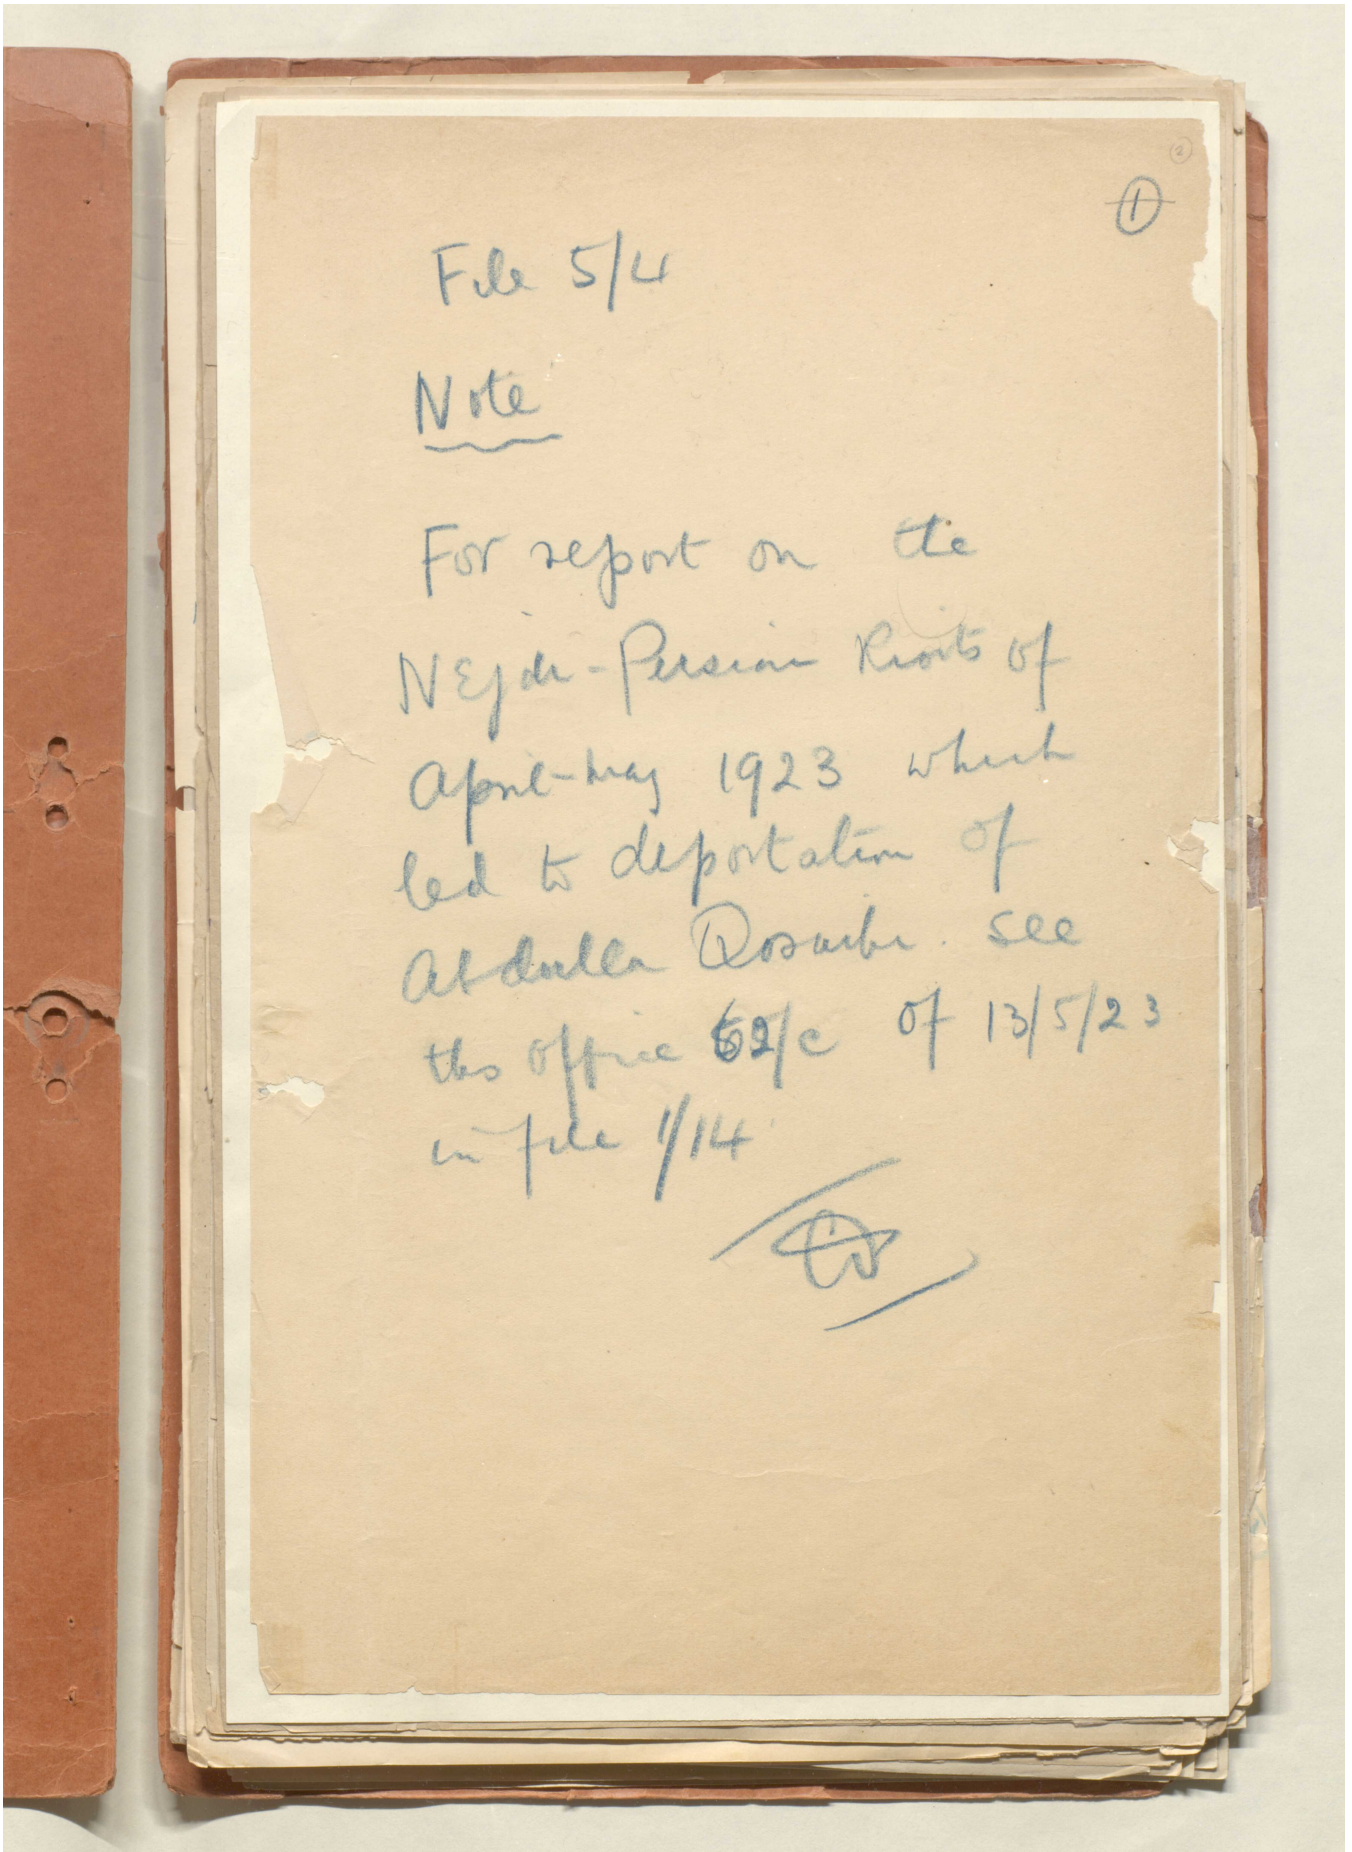 2
1
File 5/4
Note
For report on the
NEjdi-Persian Riots of
April-May 1923 which
led to deportation of
Abdulla Qosaibi. see
this office 62/c of 13/5/23
in file 1/14